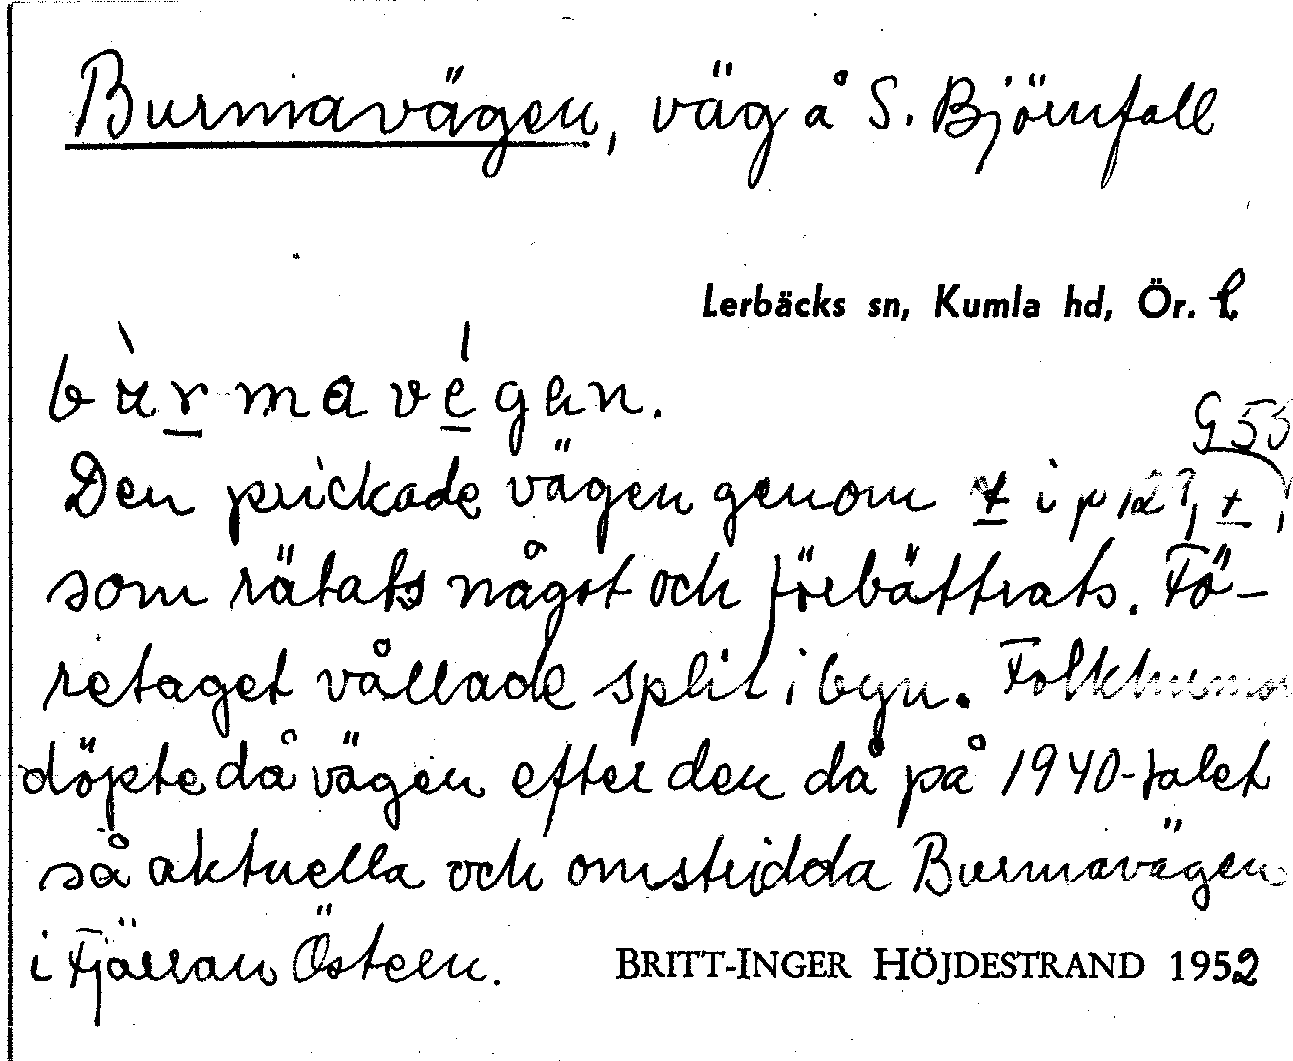 Burmavägen, väg å S. Björnfall
Lerbäcks sn, Kumla hd, Ör. l.
bùrmavégan.
G 53
Den prickade vägen genom + i p 127, +,
som rätats något och förbättrats. Fö-
retaget vållade split i byn. Folkhumor
döpte då vägen efter den då på 1940-talet
så aktuella och omstridda Burmavägen
i Fjärran Östern.
BRITT-INGER HÖJDESTRAND 1952